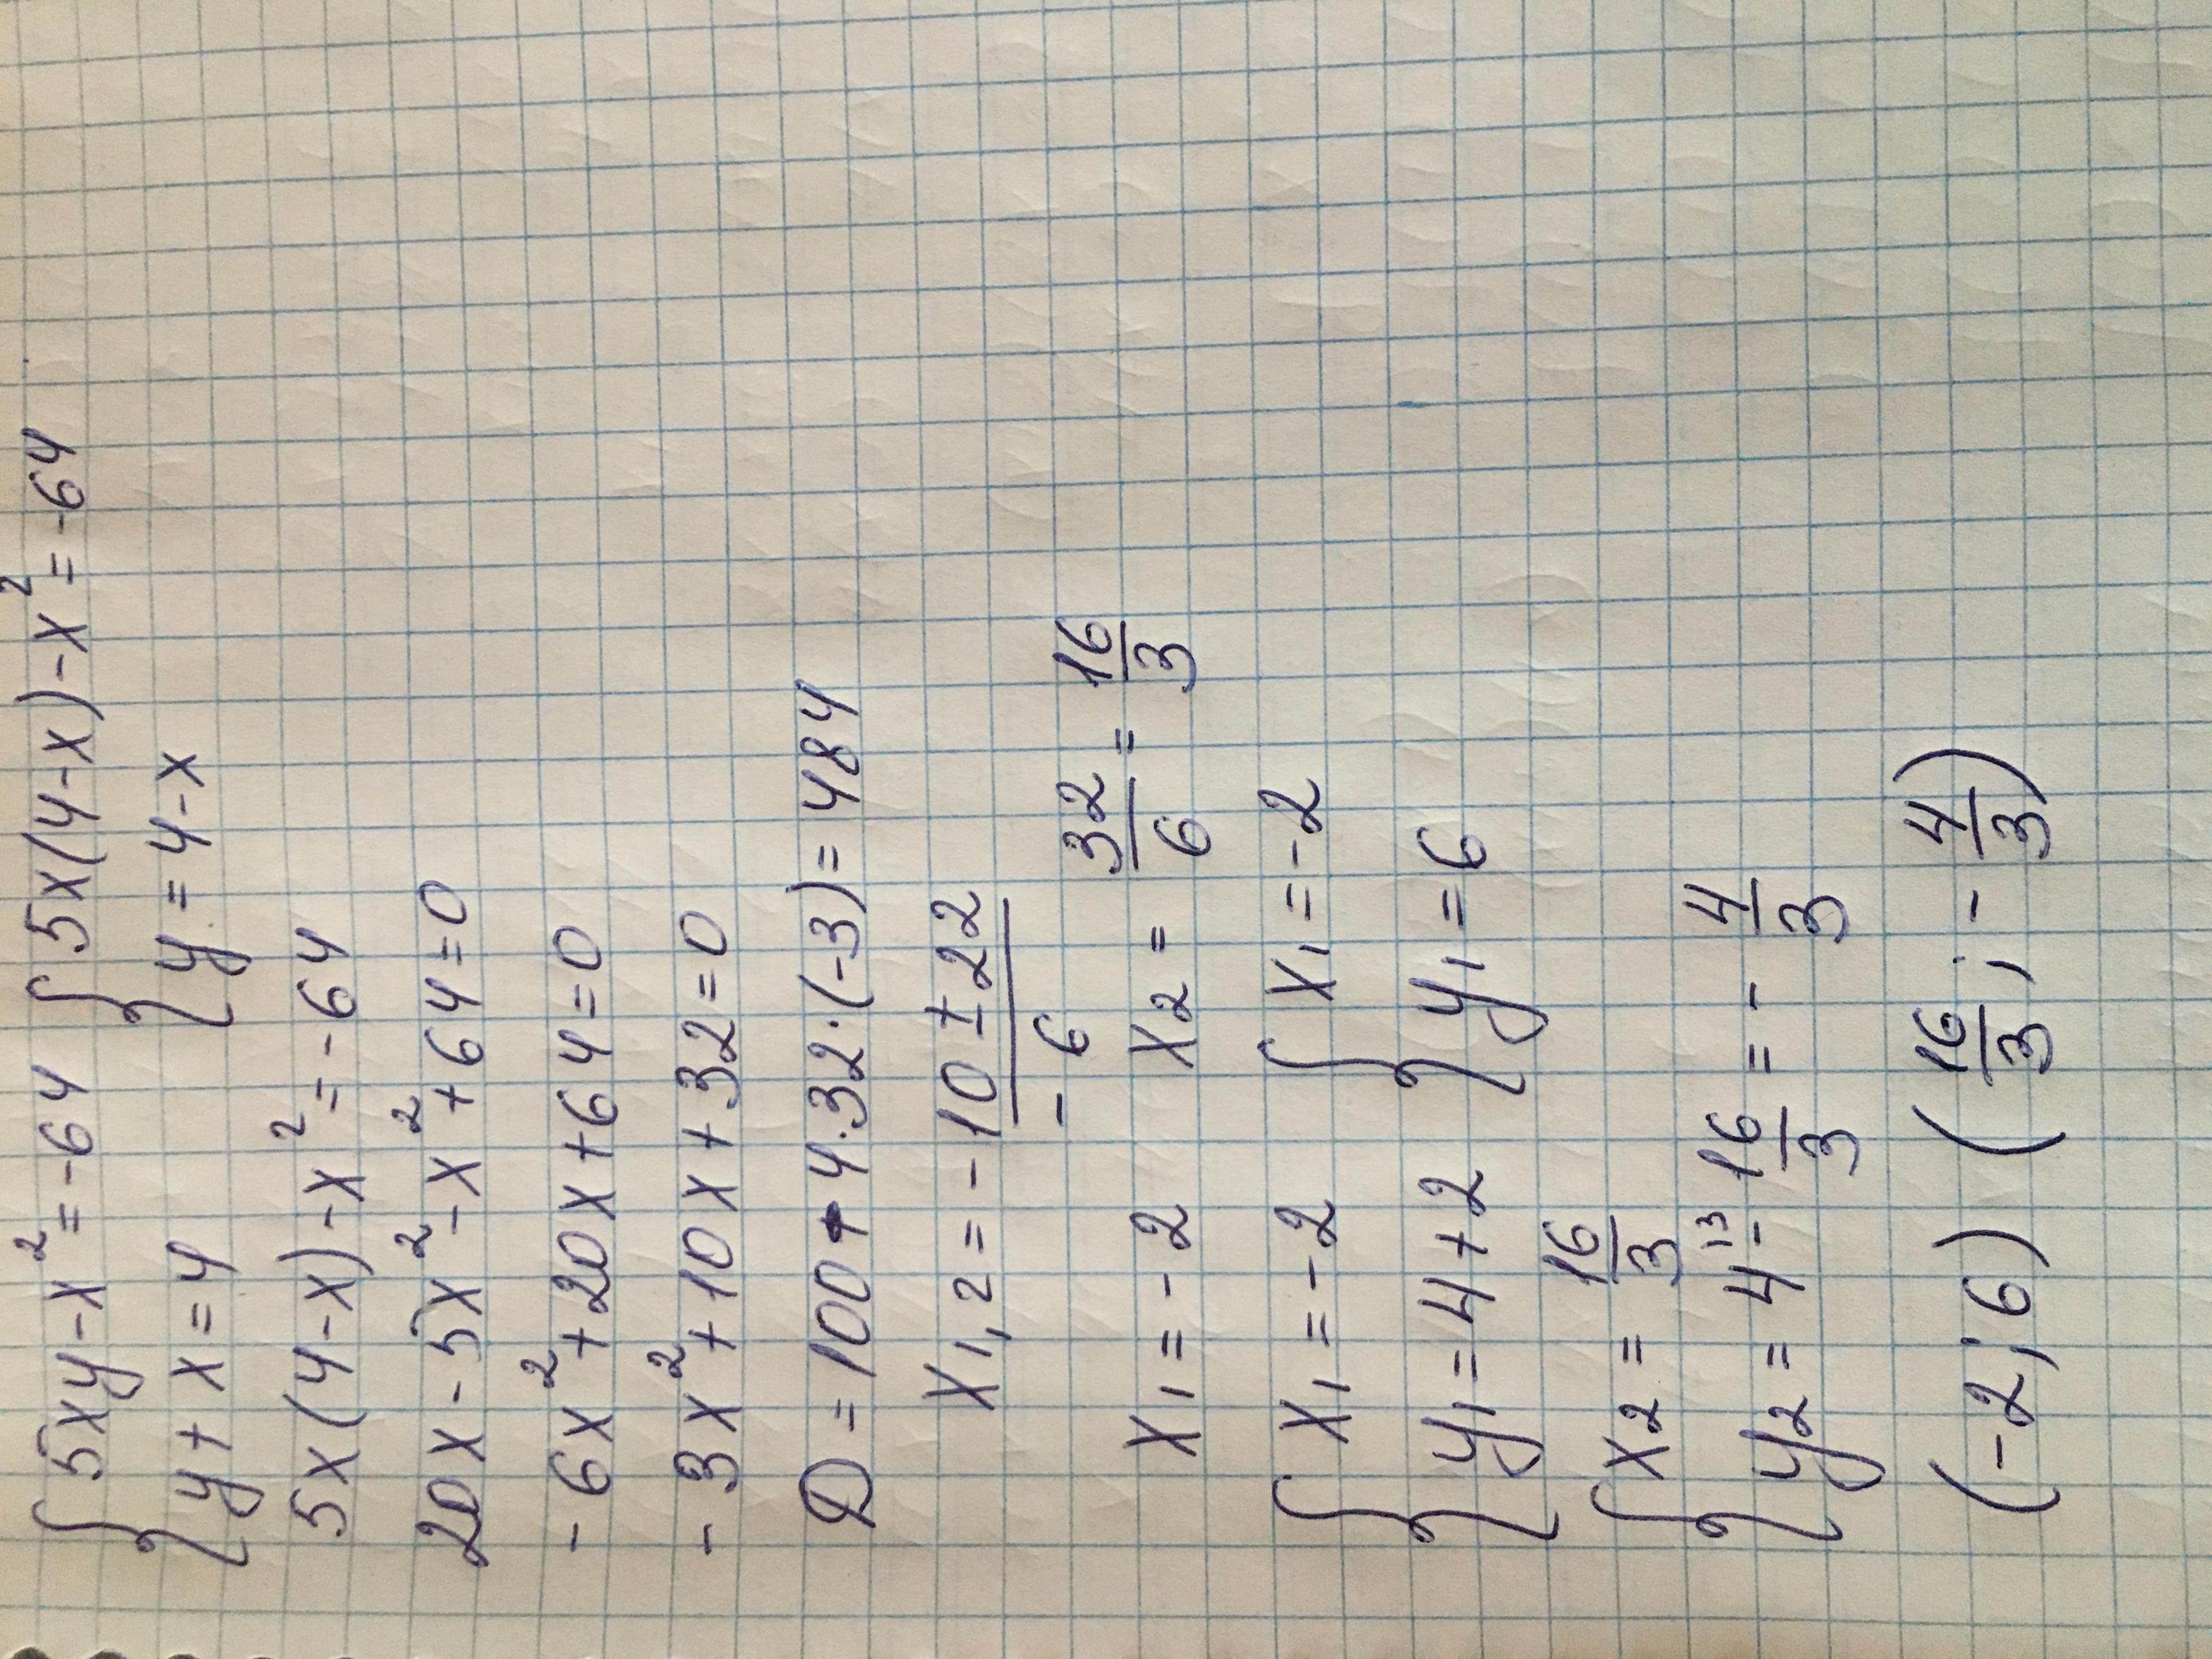 { 5xy - x² = -64 { 5x(4-x) - x² = -64
{ y + x = 4 { y = 4-x
5x(4-x) - x² = -64
20x - 5x² - x² + 64 = 0
-6x² + 20x + 64 = 0
-3x² + 10x + 32 = 0
D = 100 + 4·32·(-3) = 484
x₁,₂ = -10 ± 22 / -6
x₁ = -2 x₂ = 32/6 = 16/3
{ x₁ = -2 { x₁ = -2
{ y₁ = 4+2 { y₁ = 6
{ x₂ = 16/3
{ y₂ = 4\3 - 16/3 = - 4/3
(-2; 6) (16/3; - 4/3)